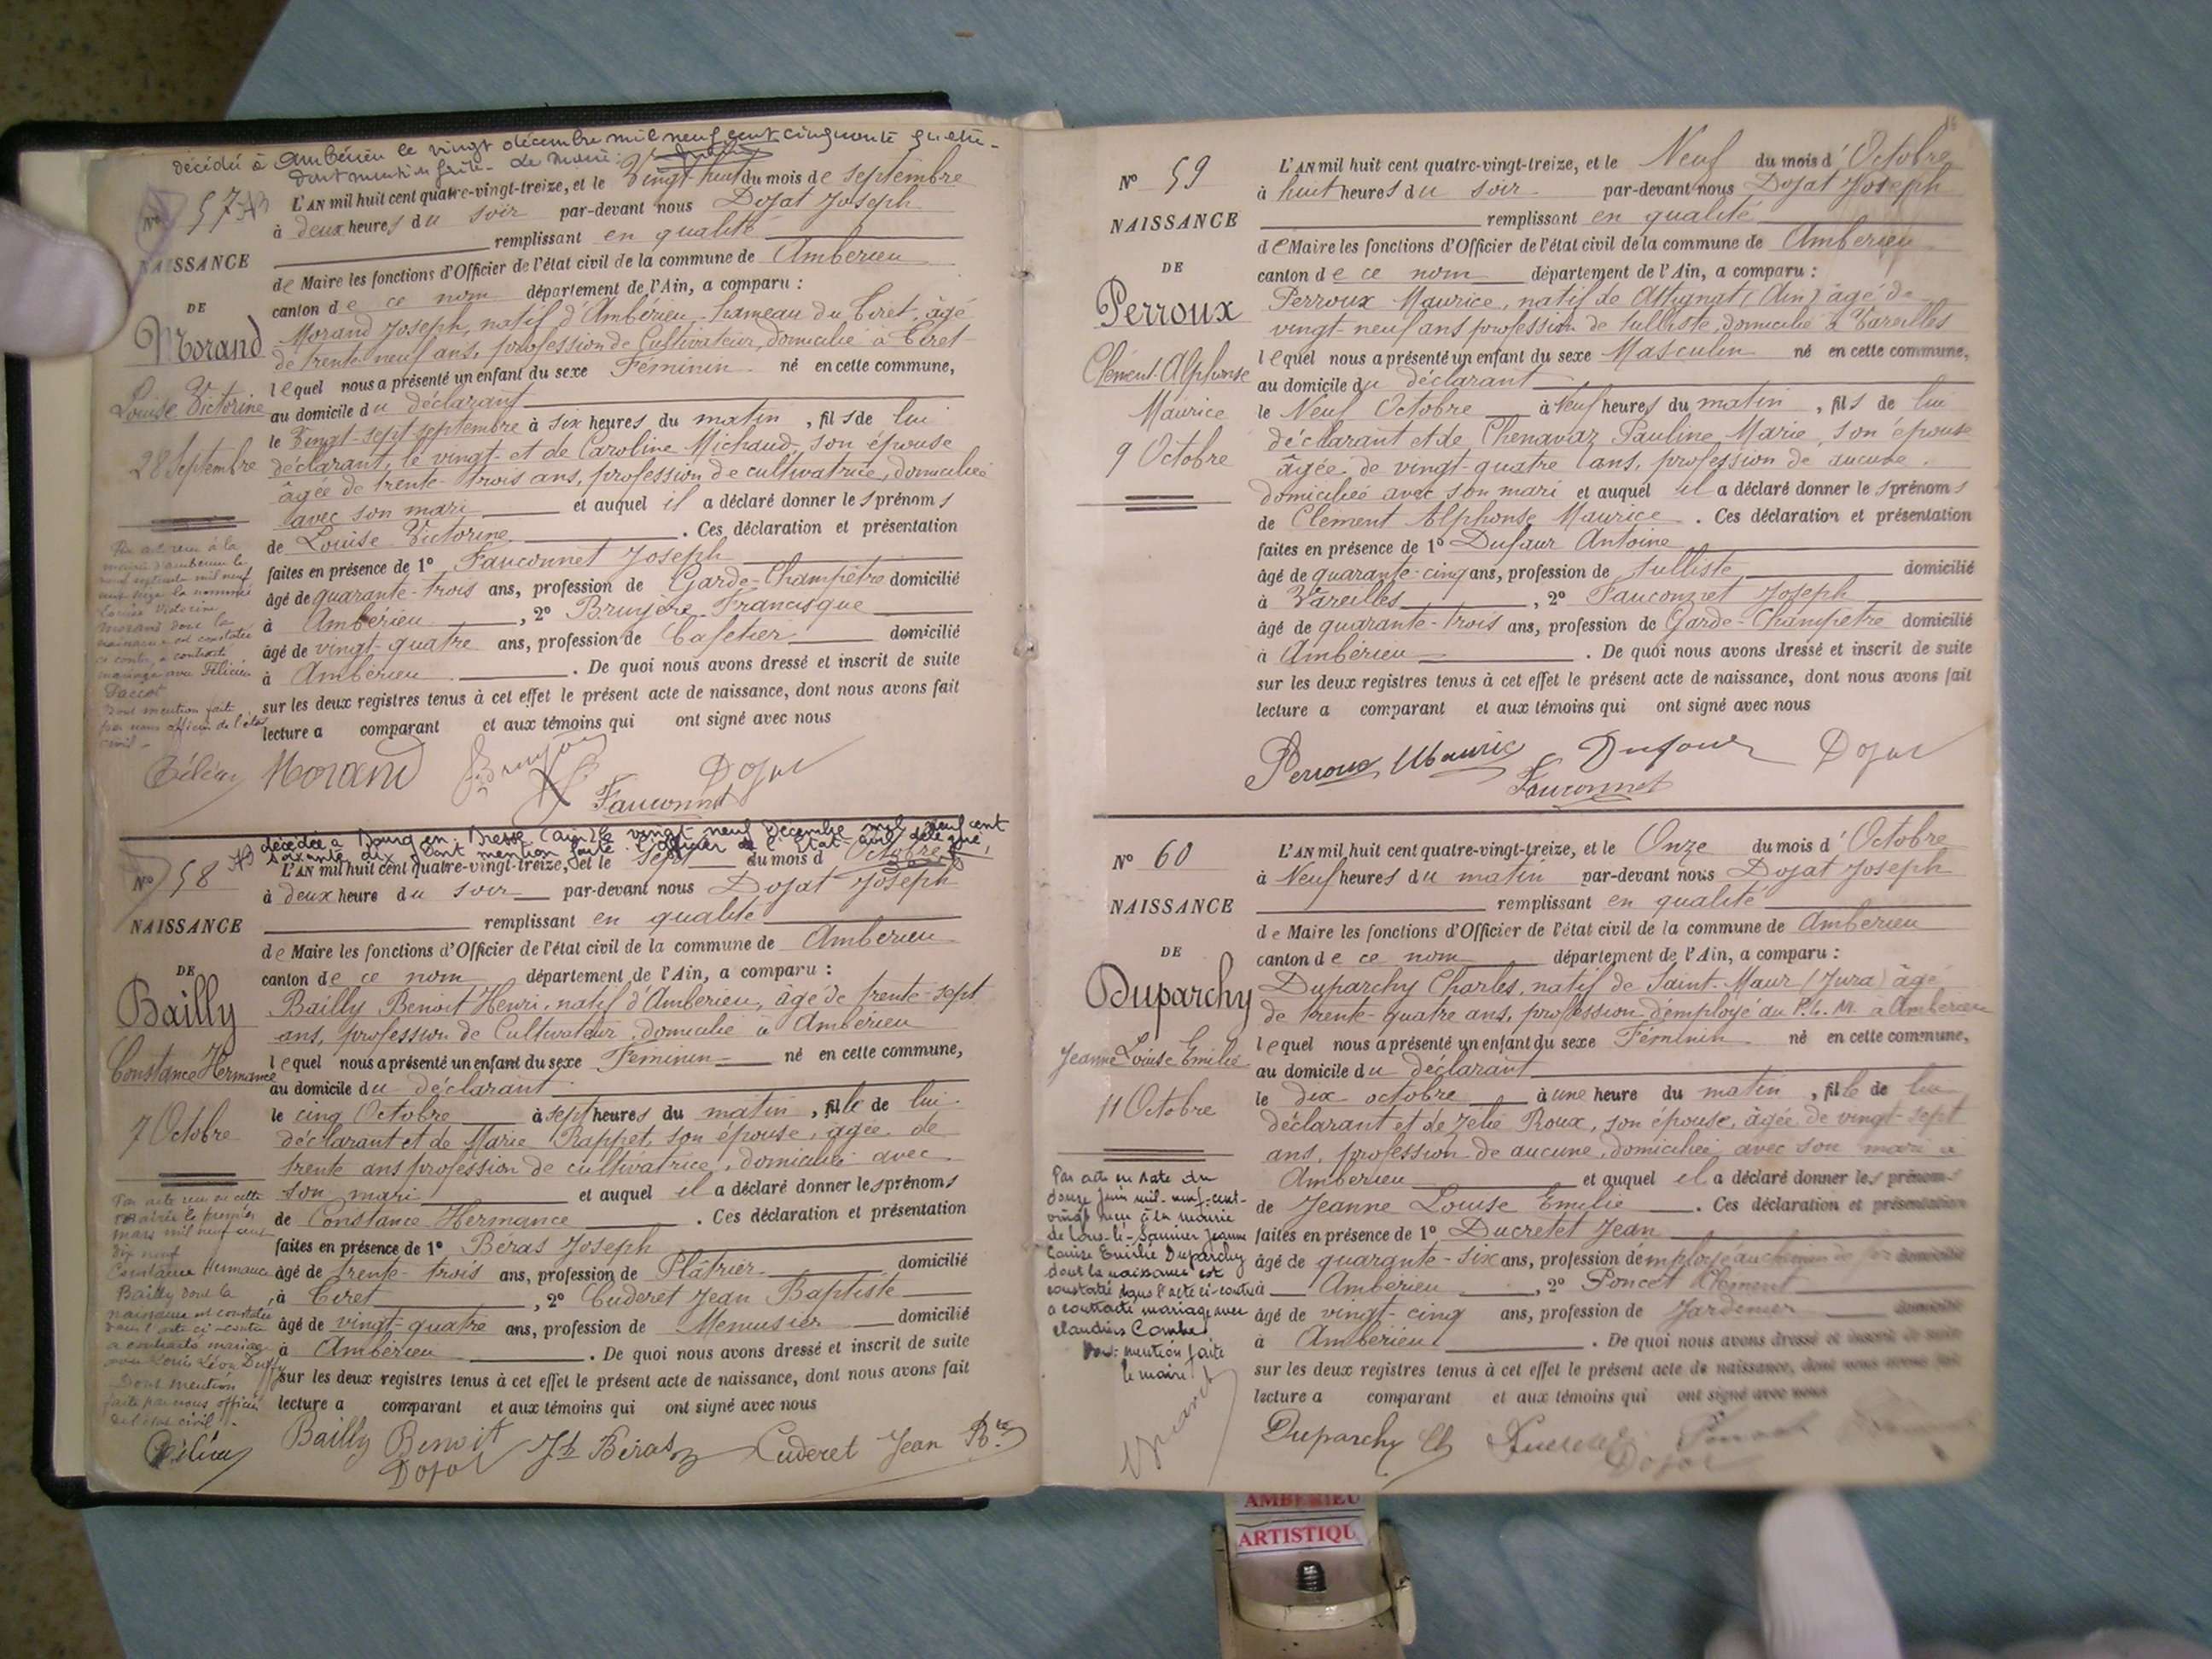 décédée à Ambérieu le vingt décembre mil neuf cent cinquante quatre
dont mention faite - Le Maire :
N° 57
NAISSANCE
DE
Morand
Louise Victorine
28 Septembre
L'AN mil huit cent quatre-vingt-treize, et le Vingt-huit du mois de Septembre
à deux heures du soir par-devant nous Dojat Joseph
remplissant en qualité
de Maire les fonctions d'Officier de l'état civil de la commune de Ambérieu
canton de ce nom département de l'Ain, a comparu :
Morand Joseph, natif d'Ambérieu, hameau du Tiret, âgé
de trente neuf ans, profession de Cultivateur, domicilié à Tiret
lequel nous a présenté un enfant du sexe Féminin né en cette commune,
au domicile du déclarant
le Vingt-sept septembre à six heures du matin, fils de lui
déclarant, le vingt et de Caroline Michaud, son épouse
âgée de trente-trois ans, profession de cultivatrice, domiciliée
avec son mari et auquel il a déclaré donner les prénoms
de Louise Victorine. Ces déclaration et présentation
faites en présence de 1° Fauconnet Joseph
âgé de quarante-trois ans, profession de Garde-Champêtre domicilié
à Ambérieu, 2° Bruyère Francisque
âgé de vingt-quatre ans, profession de Cafetier domicilié
à Ambérieu. De quoi nous avons dressé et inscrit de suite
sur les deux registres tenus à cet effet le présent acte de naissance, dont nous avons fait
lecture a comparant et aux témoins qui ont signé avec nous
Par acte reçu à la
mairie d'Ambérieu le
neuf septembre mil neuf
cent seize la nommée
Louise Victorine
Morand dont la
naissance est constatée
ci contre, a contracté
mariage avec Félicien
Paccot
Dont mention faite
par nous officier de l'état
civil -
Morand
Dojat
Fauconnet
décédée à Bourg en Bresse (Ain) le vingt-neuf Décembre mil neuf cent
soixante dix Dont mention faite. L'Officier de l'Etat-civil délégué,
N° 58
NAISSANCE
DE
Bailly
Constance Hermance
7 Octobre
L'AN mil huit cent quatre-vingt-treize, et le Sept du mois d'Octobre
à deux heure du soir par-devant nous Dojat Joseph
remplissant en qualité
de Maire les fonctions d'Officier de l'état civil de la commune de Ambérieu
canton de ce nom département de l'Ain, a comparu :
Bailly Benoit Henri, natif d'Ambérieu, âgé de trente-sept
ans, profession de Cultivateur, domicilié à Ambérieu
lequel nous a présenté un enfant du sexe Féminin né en cette commune,
au domicile du déclarant
le cinq Octobre à sept heures du matin, fille de lui
déclarant et de Marie Rappet, son épouse, âgée de
trente ans profession de cultivatrice, domiciliée avec
son mari et auquel il a déclaré donner les prénoms
de Constance Hermance. Ces déclaration et présentation
faites en présence de 1° Béras Joseph
âgé de trente-trois ans, profession de Plâtrier domicilié
à Tiret, 2° Cuderet Jean Baptiste
âgé de vingt-quatre ans, profession de Menuisier domicilié
à Ambérieu. De quoi nous avons dressé et inscrit de suite
sur les deux registres tenus à cet effet le présent acte de naissance, dont nous avons fait
lecture a comparant et aux témoins qui ont signé avec nous
Par acte reçu en cette
mairie le premier
mars mil neuf cent
dix neuf
Constance Hermance
Bailly dont la
naissance est constatée
dans l'acte ci-contre
a contracté mariage
avec Louis Léon
Dont mention
faite par nous officier
de l'état civil.
Bailly Benoit
Jh Béras
Cuderet Jean Bte
Dojat
N° 59
NAISSANCE
DE
Perroux
Clément Alphonse
Maurice
9 Octobre
L'AN mil huit cent quatre-vingt-treize, et le Neuf du mois d'Octobre
à huit heures du soir par-devant nous Dojat Joseph
remplissant en qualité
de Maire les fonctions d'Officier de l'état civil de la commune de Ambérieu
canton de ce nom département de l'Ain, a comparu :
Perroux Maurice, natif de Attignat (Ain) âgé de
vingt-neuf ans profession de tulliste, domicilié à Vareilles
lequel nous a présenté un enfant du sexe Masculin né en cette commune,
au domicile du déclarant
le Neuf Octobre à Neuf heures du matin, fils de lui
déclarant et de Chenavaz Pauline Marie, son épouse
âgée de vingt-quatre ans, profession de aucune.
domiciliée avec son mari et auquel il a déclaré donner les prénoms
de Clément Alphonse Maurice. Ces déclaration et présentation
faites en présence de 1° Dufaur Antoine
âgé de quarante-cinq ans, profession de tulliste domicilié
à Vareilles, 2° Fauconnet Joseph
âgé de quarante-trois ans, profession de Garde-Champêtre domicilié
à Ambérieu. De quoi nous avons dressé et inscrit de suite
sur les deux registres tenus à cet effet le présent acte de naissance, dont nous avons fait
lecture a comparant et aux témoins qui ont signé avec nous
Perroux Maurice
Dufour
Dojat
Fauconnet
N° 60
NAISSANCE
DE
Duparchy
Jeanne Louise Emilie
11 Octobre
L'AN mil huit cent quatre-vingt-treize, et le Onze du mois d'Octobre
à Neuf heures du matin par-devant nous Dojat Joseph
remplissant en qualité
de Maire les fonctions d'Officier de l'état civil de la commune de Ambérieu
canton de ce nom département de l'Ain, a comparu :
Duparchy Charles, natif de Saint-Maur (Jura) âgé
de trente-quatre ans, profession d'employé au P.L.M. à Ambérieu
lequel nous a présenté un enfant du sexe Féminin né en cette commune,
au domicile du déclarant
le dix octobre à une heure du matin, fille de lui
déclarant et de Zélie Roux, son épouse, âgée de vingt-sept
ans, profession de aucune, domiciliée avec son mari à
Ambérieu et auquel il a déclaré donner les prénoms
de Jeanne Louise Emilie. Ces déclaration et présentation
faites en présence de 1° Ducretet Jean
âgé de quarante-six ans, profession d'employé au chemin de fer domicilié
à Ambérieu, 2° Poncet Clément
âgé de vingt-cinq ans, profession de Jardinier domicilié
à Ambérieu. De quoi nous avons dressé et inscrit de suite
sur les deux registres tenus à cet effet le présent acte de naissance, dont nous avons fait
lecture a comparant et aux témoins qui ont signé avec nous
Par acte en date du
douze juin mil-neuf-cent-
vingt reçu à la mairie
de Lons-le-Saunier Jeanne
Louise Emilie Duparchy
dont la naissance est
constatée dans l'acte ci-contre
a contracté mariage avec
Claudius Combe
Dont mention faite
le maire
Duparchy Ch
Dojat
AMBERIEU
ARTISTIQU